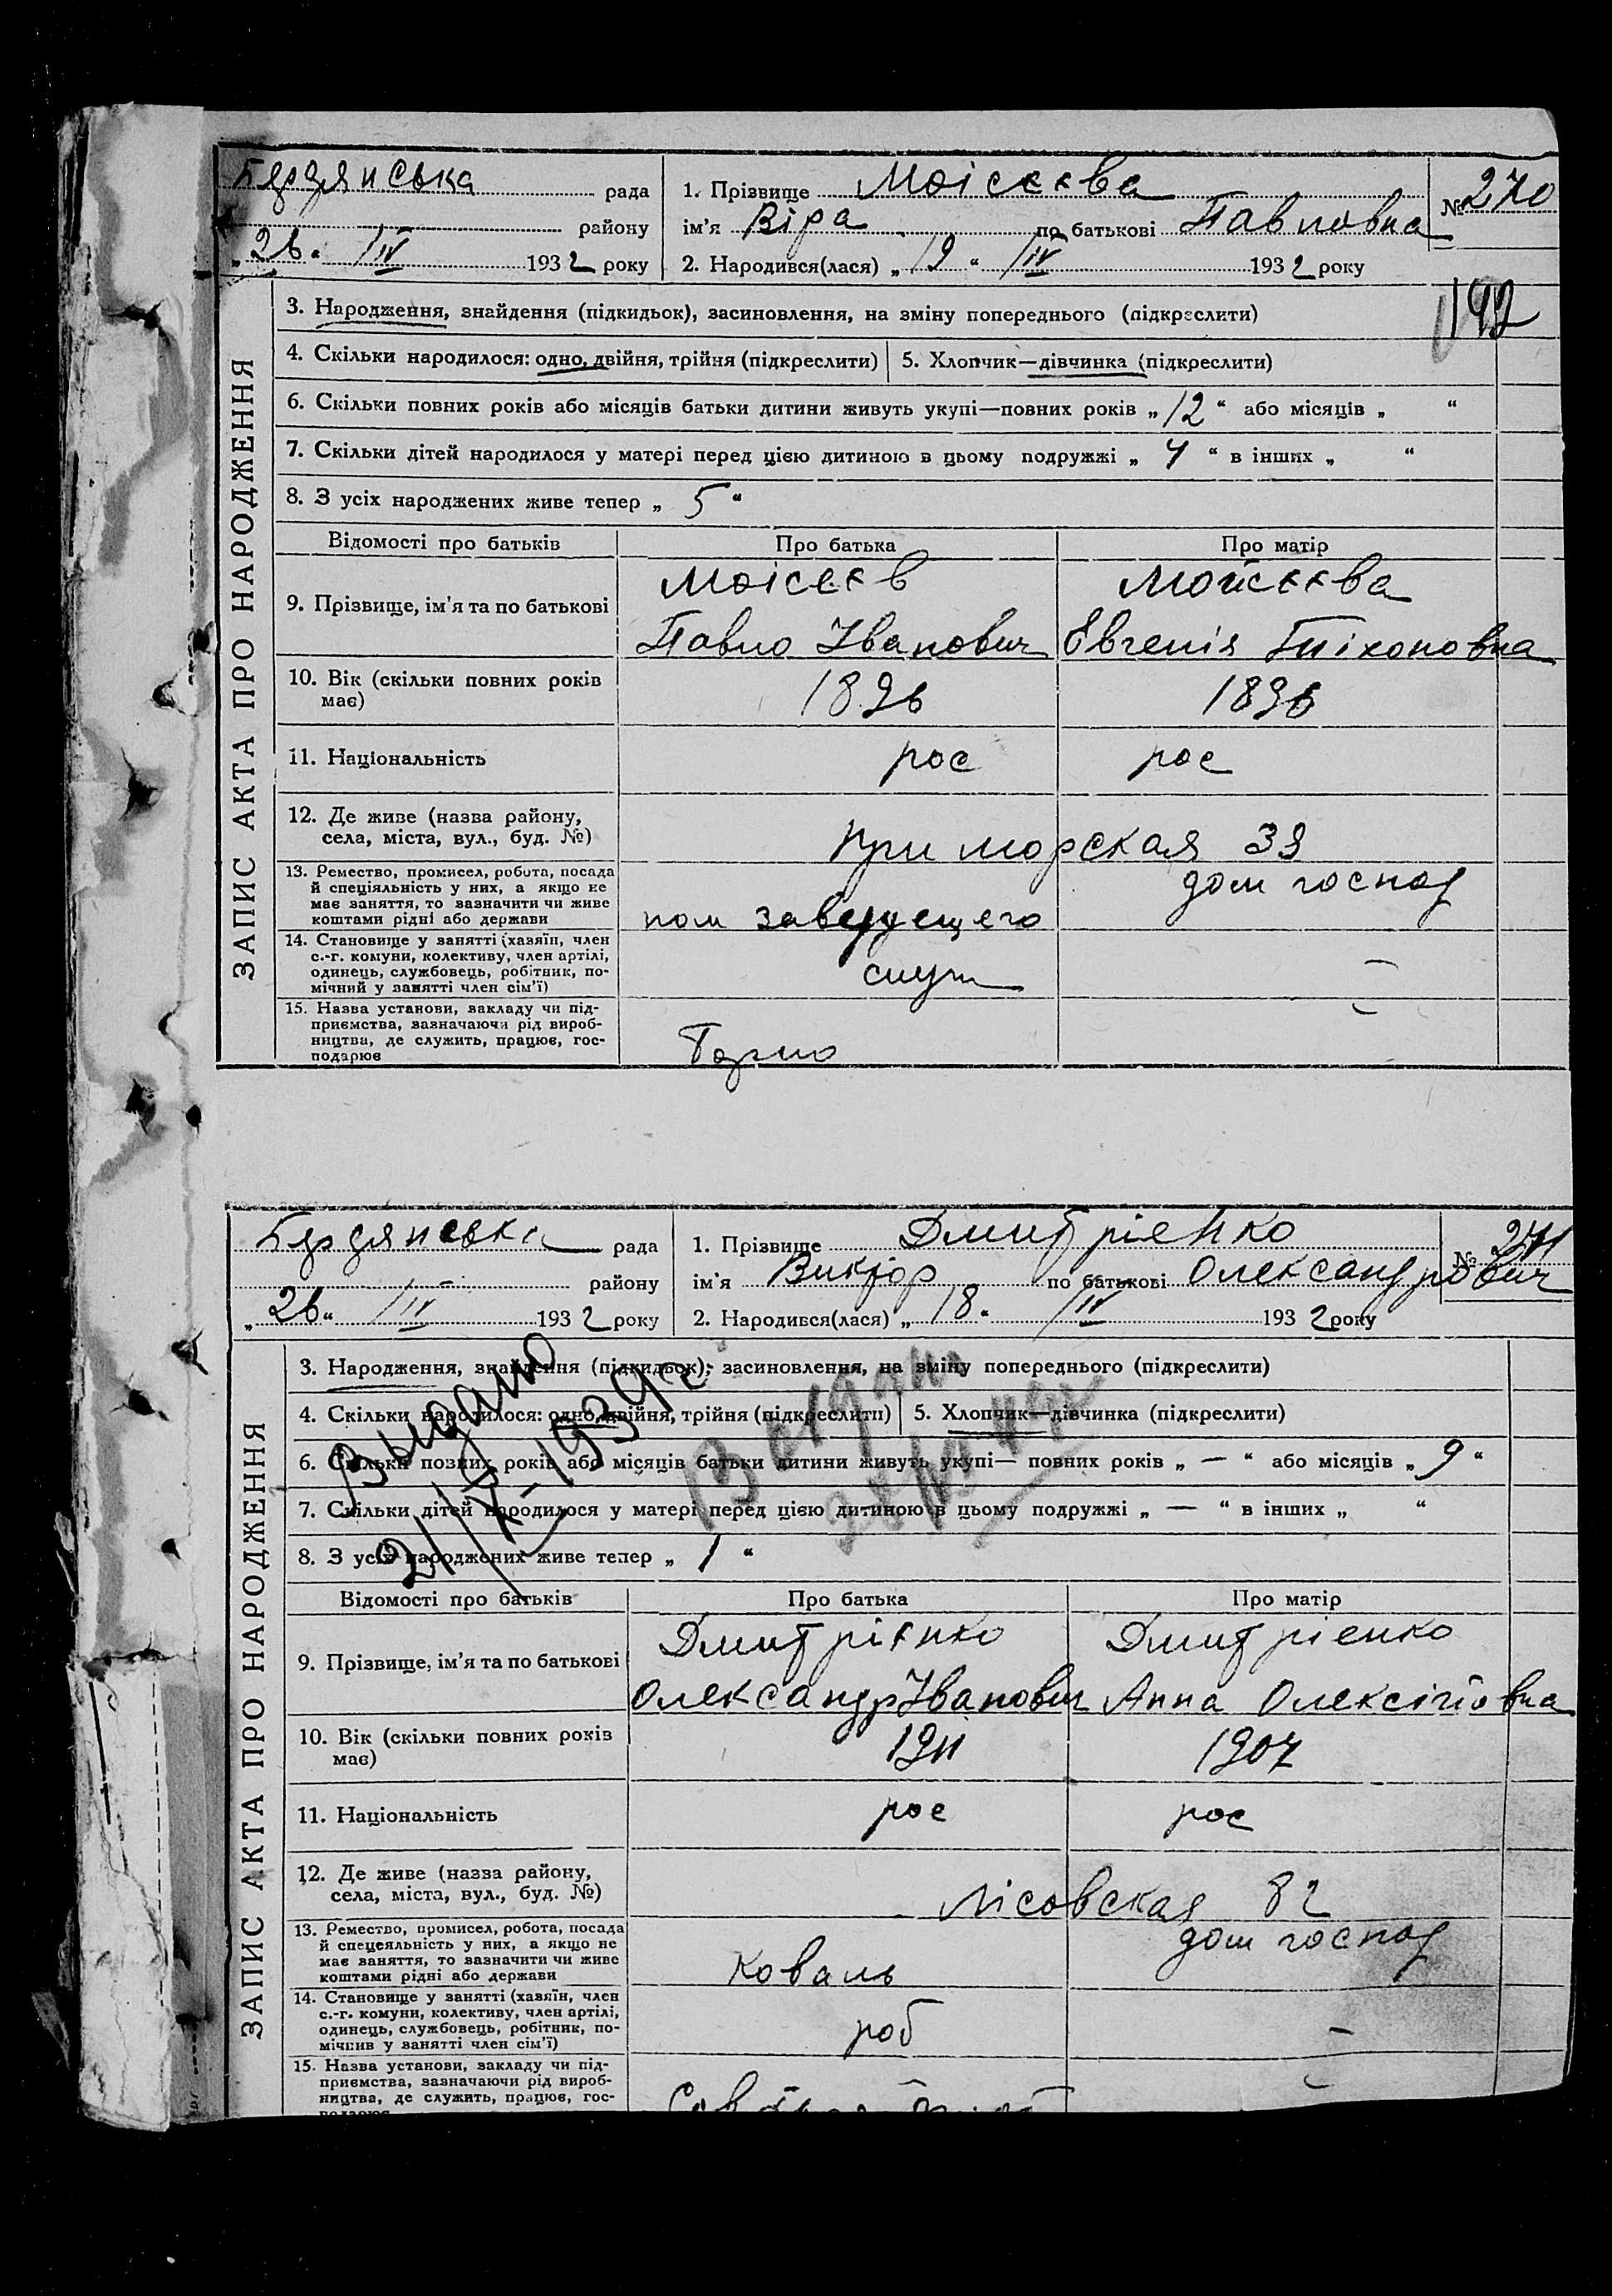 ЗАПИС АКТА ПРО НАРОДЖЕННЯ
Бердянська рада
району
„26“ /IV 1932 року
1. Прізвище Моісєєва
ім'я Віра по батькові Павловна
2. Народився(лася) „19“ /IV 1932 року
№ 270
192
3. Народження, знайдення (підкидьок), засиновлення, на зміну попереднього (підкреслити)
4. Скільки народилося: одно, двійня, трійня (підкреслити) 5. Хлопчик—дівчинка (підкреслити)
6. Скільки повних років або місяців батьки дитини живуть укупі—повних років „12“ або місяців „ “
7. Скільки дітей народилося у матері перед цією дитиною в цьому подружжі „4“ в інших „ “
8. З усіх народжених живе тепер „5“
Відомості про батьків Про батька Про матір
9. Прізвище, ім'я та по батькові
Моісєєв
Павло Іванович
Мойсєєва
Євгенія Тіхоновна
10. Вік (скільки повних років
має)
1896 1896
11. Національність рос рос
12. Де живе (назва району,
села, міста, вул., буд. №)
Приморская 39
13. Ремество, промисел, робота, посада
й спеціяльність у них, а якщо не
має заняття, то зазначити чи живе
коштами рідні або держави
пом заведующего
дом господ
14. Становище у занятті (хазяїн, член
с.-г. комуни, колективу, член артілі,
одинець, службовець, робітник, по-
мічний у занятті член сім'ї)
служ –
15. Назва установи, закладу чи під-
приємства, зазначаючи рід вироб-
ництва, де служить, працює, гос-
подарює
–
ЗАПИС АКТА ПРО НАРОДЖЕННЯ
Бердянська рада
району
„26“ /IV 1932 року
1. Прізвище Дмитрієнко
ім'я Виктор по батькові Олександрович
2. Народився(лася) „18“ /IV 1932 року
№ 271
3. Народження, знайдення (підкидьок), засиновлення, на зміну попереднього (підкреслити)
4. Скільки народилося: одно, двійня, трійня (підкреслити) 5. Хлопчик—дівчинка (підкреслити)
6. Скільки повних років або місяців батьки дитини живуть укупі— повних років „ — “ або місяців „9“
7. Скільки дітей народилося у матері перед цією дитиною в цьому подружжі „ — “ в інших „ “
8. З усіх народжених живе тепер „1“
Выдано
21/IX-1939 г
Відомості про батьків Про батька Про матір
9. Прізвище, ім'я та по батькові
Дмитрієнко
Олександр Іванович
Дмитрієнко
Анна Олексіївна
10. Вік (скільки повних років
має)
1911 1907
11. Національність рос рос
12. Де живе (назва району,
села, міста, вул., буд. №)
Лісовская 82
13. Ремество, промисел, робота, посада
й спецеяльність у них, а якщо не
має заняття, то зазначити чи живе
коштами рідні або держави
Коваль
дом господ
14. Становище у занятті (хазяїн, член
с.-г. комуни, колективу, член артілі,
одинець, службовець, робітник, по-
мічнив у занятті член сім'ї)
роб –
15. Назва установи, закладу чи під-
приємства, зазначаючи рід вироб-
ництва, де служить, працює, гос-
подарює
–